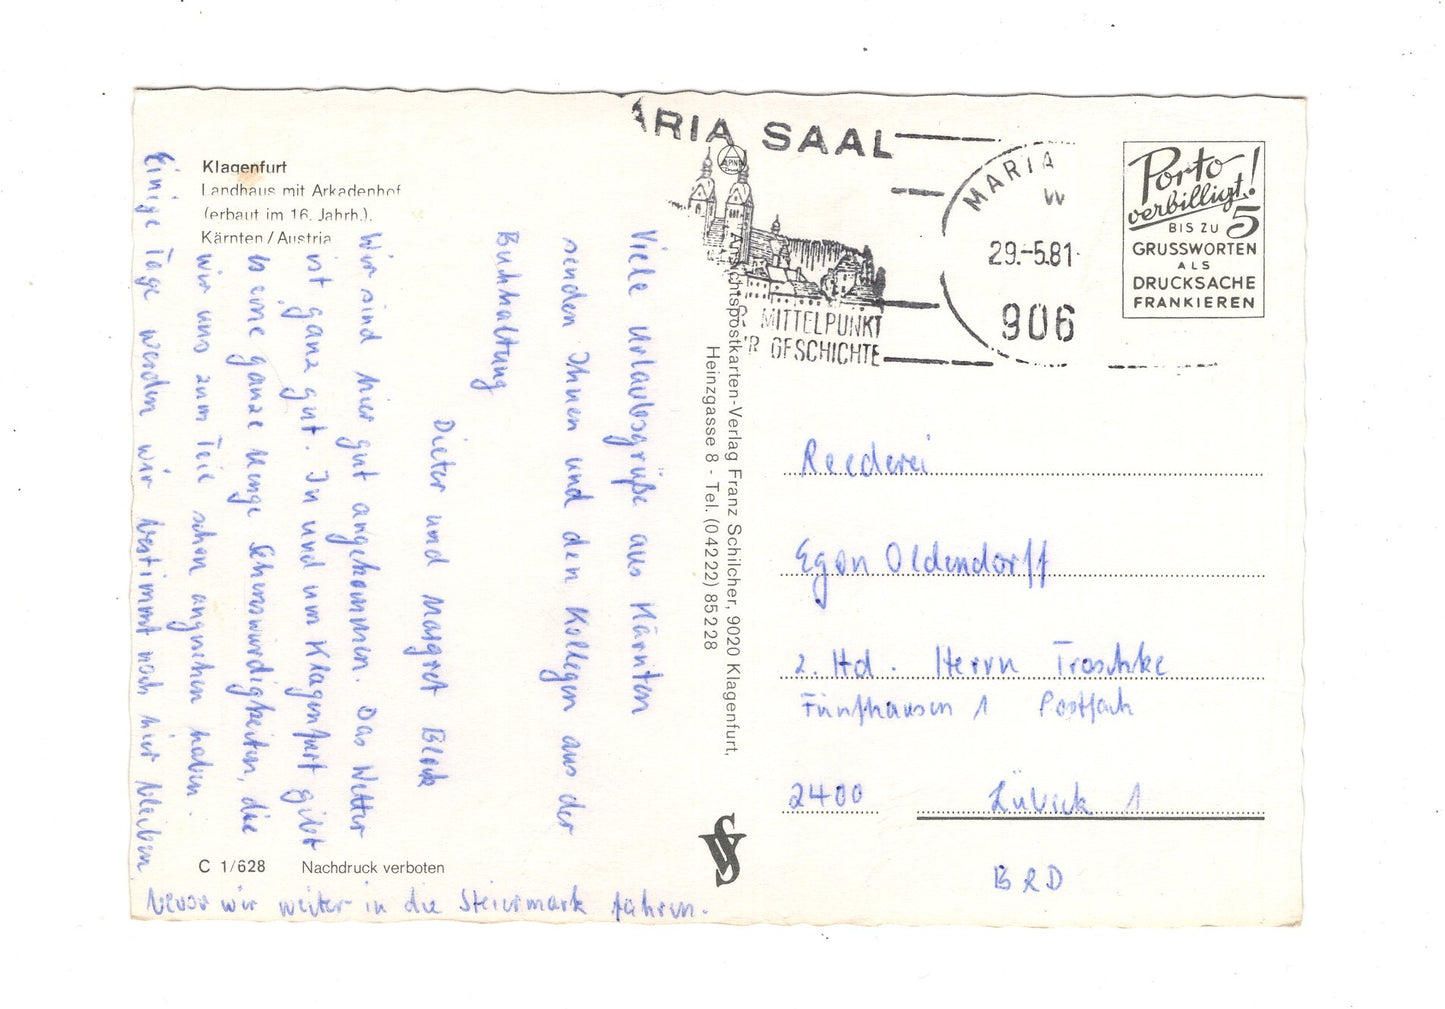 Klagenfurt
Landhaus mit Arkadenhof
(erbaut im 16. Jahrh.),
Kärnten / Austria
Viele Urlaubsgrüße aus Kärnten
senden Ihnen und den Kollegen aus der
Buchhaltung
Dieter und Margret Blank
Wir sind hier gut angekommen. Das Wetter
ist ganz gut. In und um Klagenfurt gibt
es eine ganze Menge Sehenswürdigkeiten, die
wir uns zum Teil schon angesehen haben.
Einige Tage werden wir bestimmt noch hier bleiben
bevor wir weiter in die Steiermark fahren.
C 1/628 Nachdruck verboten
Ansichtspostkarten-Verlag Franz Schilcher, 9020 Klagenfurt,
Heinzgasse 8 - Tel. (04222) 85228
ARIA SAAL
MITTELPUNKT
R GESCHICHTE
MARIA
29.-5.81
906
Porto
verbilligt!
BIS ZU 5
GRUSSWORTEN
ALS
DRUCKSACHE
FRANKIEREN
Reederei
Egon Oldendorff
z. Hd. Herrn Troschke
Fünfhausen 1 Postfach
2400 Lübeck 1
BRD